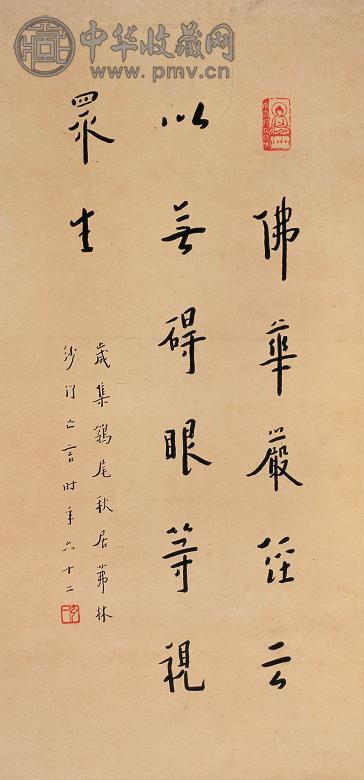 中华收藏网
www.pmv.cn
佛華嚴經云
以無碍眼等視
眾生
歲集鶉尾秋居茀林
沙门亡言时年六十二